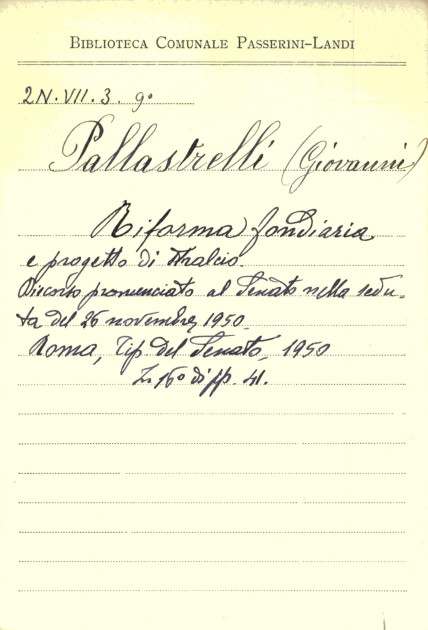 BIBLIOTECA COMUNALE PASSERINI-LANDI
2N.VII.3. 9°
Pallastrelli (Giovanni)
Riforma fondiaria
e progetto di stralcio.
Discorso pronunciato al Senato nella sedu-
ta del 25 novembre 1950.
Roma, Tip del Senato, 1950
In 16° di pp. 41.